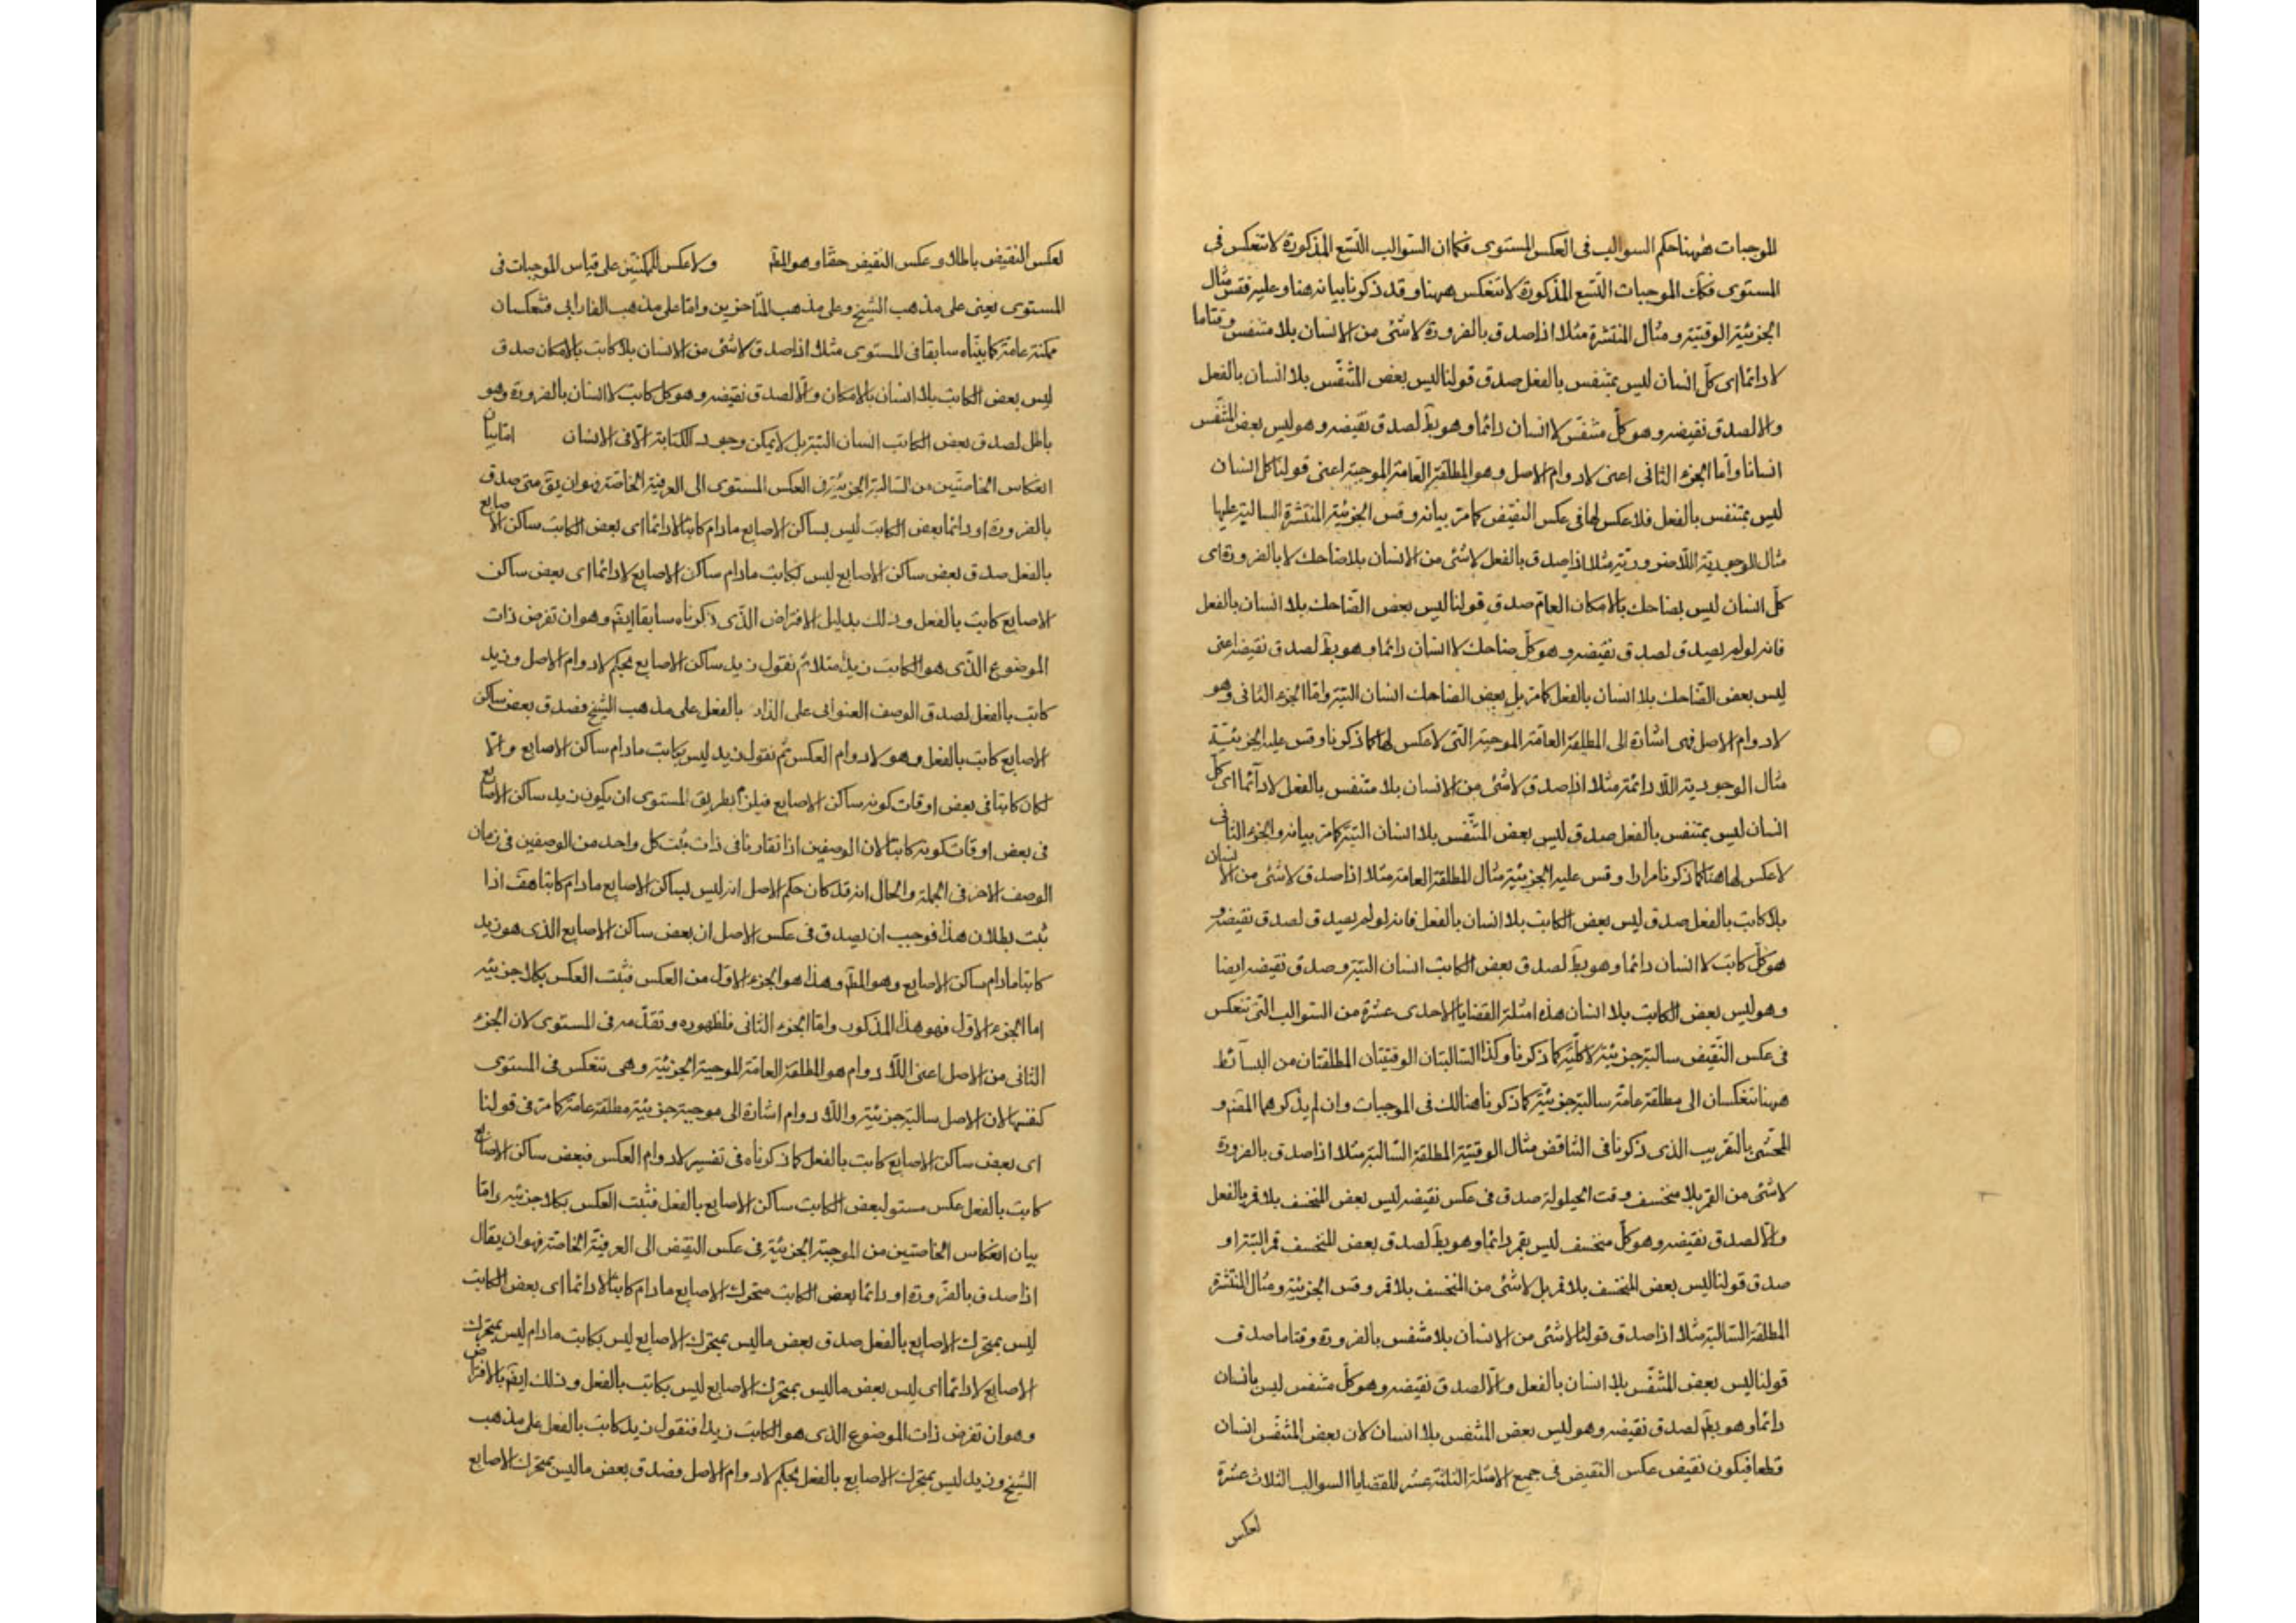 للموجبات ههنا حكم السوالب فى العكس المستوى فكما ان السوالب التسع المذكورة لا تنعكس فى
المستوى فكك الموجبات التسع المذكورة لا تنعكس ههنا وقد ذكرنا بيانه هنا وعليه فقس مثال
الجزئية الوقتية ومثال المنتشرة مثلا اذا صدق بالضرورة لا شئ من الانسان بلا متنفس وقتاما
لا دائما اى كل انسان ليس بمتنفس بالفعل صدق قولنا ليس بعض المتنفس بلا انسان بالفعل
والا لصدق نقيضه وهو كل متنفس لا انسان دائما وهو بط لصدق نقيضه وهو ليس بعض المتنفس
انسانا واما الجزء الثانى اعنى لا دوام الاصل وهو المطلقة العامة الموجبة اعنى قولنا كل انسان
ليس بمتنفس بالفعل فلا عكس لها فى عكس النقيض كما مر بيانه وقس الجزئية المنتشرة السالبة عليها
مثال الوجودية اللا ضرورية مثلا اذا صدق بالفعل لا شئ من الانسان بلا ضاحك لا بالضرورة اى
كل انسان ليس بضاحك بالامكان العام صدق قولنا ليس بعض الضاحك بلا انسان بالفعل
فانه لو لم يصدق لصدق نقيضه وهو كل ضاحك لا انسان دائما وهو بط لصدق نقيضه اعنى
ليس بعض الضاحك بلا انسان بالفعل كما مر بل بعض الضاحك انسان البتة واما الجزء الثانى وهو
لا دوام الاصل فهى اشارة الى المطلقة العامة الموجبة التى لا عكس لها كما ذكرنا وقس عليه الجزئية
مثال الوجودية اللا دائمة مثلا اذا صدق لا شئ من الانسان بلا متنفس بالفعل لا دآئما اى كل
انسان ليس بمتنفس بالفعل صدق ليس بعض المتنفس بلا انسان البتة كما مر بيانه والجزء الثانى
لا عكس لها هنا كما ذكرنا مرارا وقس عليه الجزئية مثال المطلقة العامة مثلا اذا صدق لا شئ من الانسان
بلا كاتب بالفعل صدق ليس بعض الكاتب بلا انسان بالفعل فانه لو لم يصدق لصدق نقيضه و
هو كل كاتب لا انسان دائما وهو بط لصدق بعض الكاتب انسان البتة وصدق نقيضه ايضا
وهو ليس بعض الكاتب بلا انسان هذه امثلة القضايا الاحدى عشرة من السوالب التى تنعكس
فى عكس النقيض سالبة جزئية لا كلية كما ذكرنا وكذا السالبتان الوقتيتان المطلقتان من البسآئط
ههنا تنعكسان الى مطلقة عامة سالبة جزئية كما ذكرناه هنالك فى الموجبات وان لم يذكرهما المصنف و
المحشى بالتقريب الذى ذكرنا فى التناقض مثال الوقتية المطلقة السالبة مثلا اذا صدق بالضرورة
لا شئ من القمر بلا منخسف وقت الحيلولة صدق فى عكس نقيضه ليس بعض المنخسف بلا قمر بالفعل
والا لصدق نقيضه وهو كل منخسف ليس بقمر دائما وهو بط لصدق بعض المنخسف قمر البتة او
صدق قولنا ليس بعض المنخسف بلا قمر بل لا شئ من المنخسف بلا قمر وقس الجزئية ومثال المنتشرة
المطلقة السالبة مثلا اذا صدق قولنا لا شئ من الانسان بلا متنفس بالضرورة وقتاما صدق
قولنا ليس بعض المتنفس بلا انسان بالفعل والا لصدق نقيضه وهو كل متنفس ليس بانسان
دائما وهو بط لصدق نقيضه وهو ليس بعض المتنفس بلا انسان لان بعض المتنفس انسان
قطعا فيكون نقيض عكس النقيض فى جميع الامثلة الثلثة عشر للقضايا السوالب الثلاث عشرة
لعكس
لعكس النقيض باطلا وعكس النقيض حقا وهو المط ولا عكس للممكنتين على قياس الموجبات فى
المستوى يعنى على مذهب الشيخ وعلى مذهب المتاخرين واما على مذهب الفارابى فتنعكسان
ممكنة عامة كما بيناه سابقا فى المستوى مثلا اذا صدق لا شئ من الانسان بلا كاتب بالامكان صدق
ليس بعض الكاتب بلا انسان بالامكان والا لصدق نقيضه وهو كل كاتب لا انسان بالضرورة وهو
باطل لصدق بعض الكاتب انسان البتة بل لا يمكن وجود الكتابة الا فى الانسان اما بيان
انعكاس الخاصتين من السالبة الجزئية فى العكس المستوى الى العرفية الخاصة فهو ان يق متى صدق
بالضرورة او دائما بعض الكاتب ليس بساكن الاصابع مادام كاتبا لا دائما اى بعض الكاتب ساكن الاصابع
بالفعل صدق بعض ساكن الاصابع ليس بكاتب مادام ساكن الاصابع لا دائما اى بعض ساكن
الاصابع كاتب بالفعل وذلك بدليل الافتراض الذى ذكرناه سابقا ايضا وهو ان تفرض ذات
الموضوع الذى هو الكاتب زيدا مثلا ثم نقول زيد ساكن الاصابع بحكم لا دوام الاصل وزيد
كاتب بالفعل لصدق الوصف العنوانى على الذات بالفعل على مذهب الشيخ فصدق بعض ساكن
الاصابع كاتب بالفعل وهو لا دوام العكس ثم نقول زيد ليس بكاتب مادام ساكن الاصابع والا
لكان كاتبا فى بعض اوقات كونه ساكن الاصابع فيلزم بطريق المستوى ان يكون زيد ساكن الاصابع
فى بعض اوقات كونه كاتبا لان الوصفين اذا تقارنا فى ذات يثبت كل واحد من الوصفين فى زمان
الوصف الاخر فى الجملة والحال انه قد كان حكم الاصل انه ليس بساكن الاصابع مادام كاتبا هف اذا
ثبت بطلان هذا فوجب ان يصدق فى عكس الاصل ان بعض ساكن الاصابع الذى هو زيد
كاتبا مادام ساكن الاصابع وهو المط وهذا هو الجزء الاول من العكس فثبت العكس بكلا جزئيه
اما الجزء الاول فهو هذا المذكور واما الجزء الثانى فلظهوره وتقدمه فى المستوى لان الجزء
الثانى من الاصل اعنى اللا دوام هو المطلقة العامة الموجبة الجزئية وهى تنعكس فى المستوى
كنفسها لان الاصل سالبة جزئية واللا دوام اشارة الى موجبة جزئية مطلقة عامة كما مر فى قولنا
اى بعض ساكن الاصابع كاتب بالفعل كما ذكرناه فى تفسير لا دوام العكس فبعض ساكن الاصابع
كاتب بالفعل عكس مستو لبعض الكاتب ساكن الاصابع بالفعل فثبت العكس بكلا جزئيه واما
بيان انعكاس الخاصتين من الموجبة الجزئية فى عكس النقيض الى العرفية الخاصة فهو ان يقال
اذا صدق بالضرورة او دائما بعض الكاتب متحرك الاصابع مادام كاتبا لا دائما اى بعض الكاتب
ليس بمتحرك الاصابع بالفعل صدق بعض ما ليس بمتحرك الاصابع ليس بكاتب مادام ليس بمتحرك
الاصابع لا دائما اى ليس بعض ما ليس بمتحرك الاصابع ليس بكاتب بالفعل وذلك ايضا بالافتراض
وهو ان تفرض ذات الموضوع الذى هو الكاتب زيدا فنقول زيد كاتب بالفعل على مذهب
الشيخ وزيد ليس بمتحرك الاصابع بالفعل بحكم لا دوام الاصل فصدق بعض ما ليس بمتحرك الاصابع